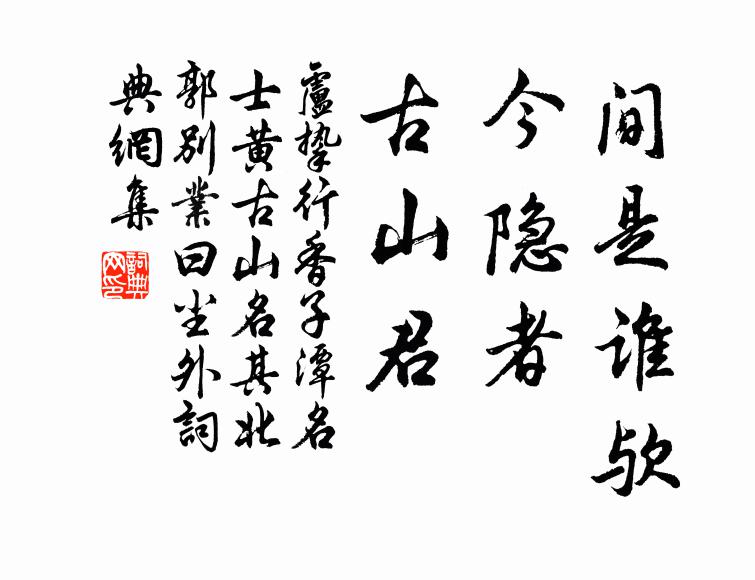 间是谁欤
今隐者
古山君
盧摯行香子潭名
士黄古山名其北
郭别業曰尘外詞
典網集
詞典
网印